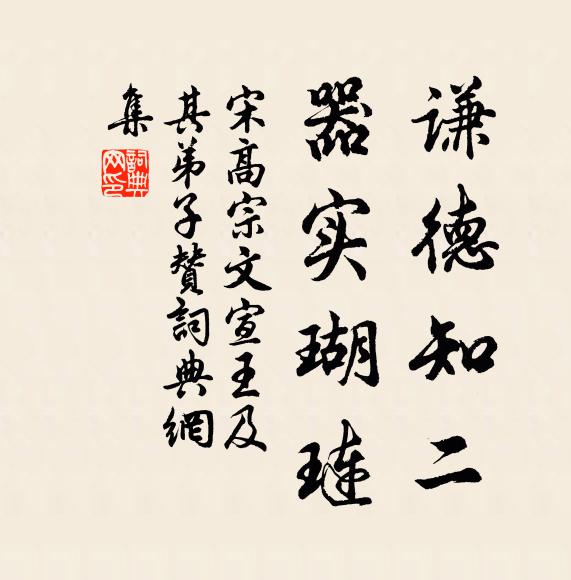 谦德知二
器实瑚琏
宋高宗文宣王及
其弟子賛詞典網
集
詞典网印